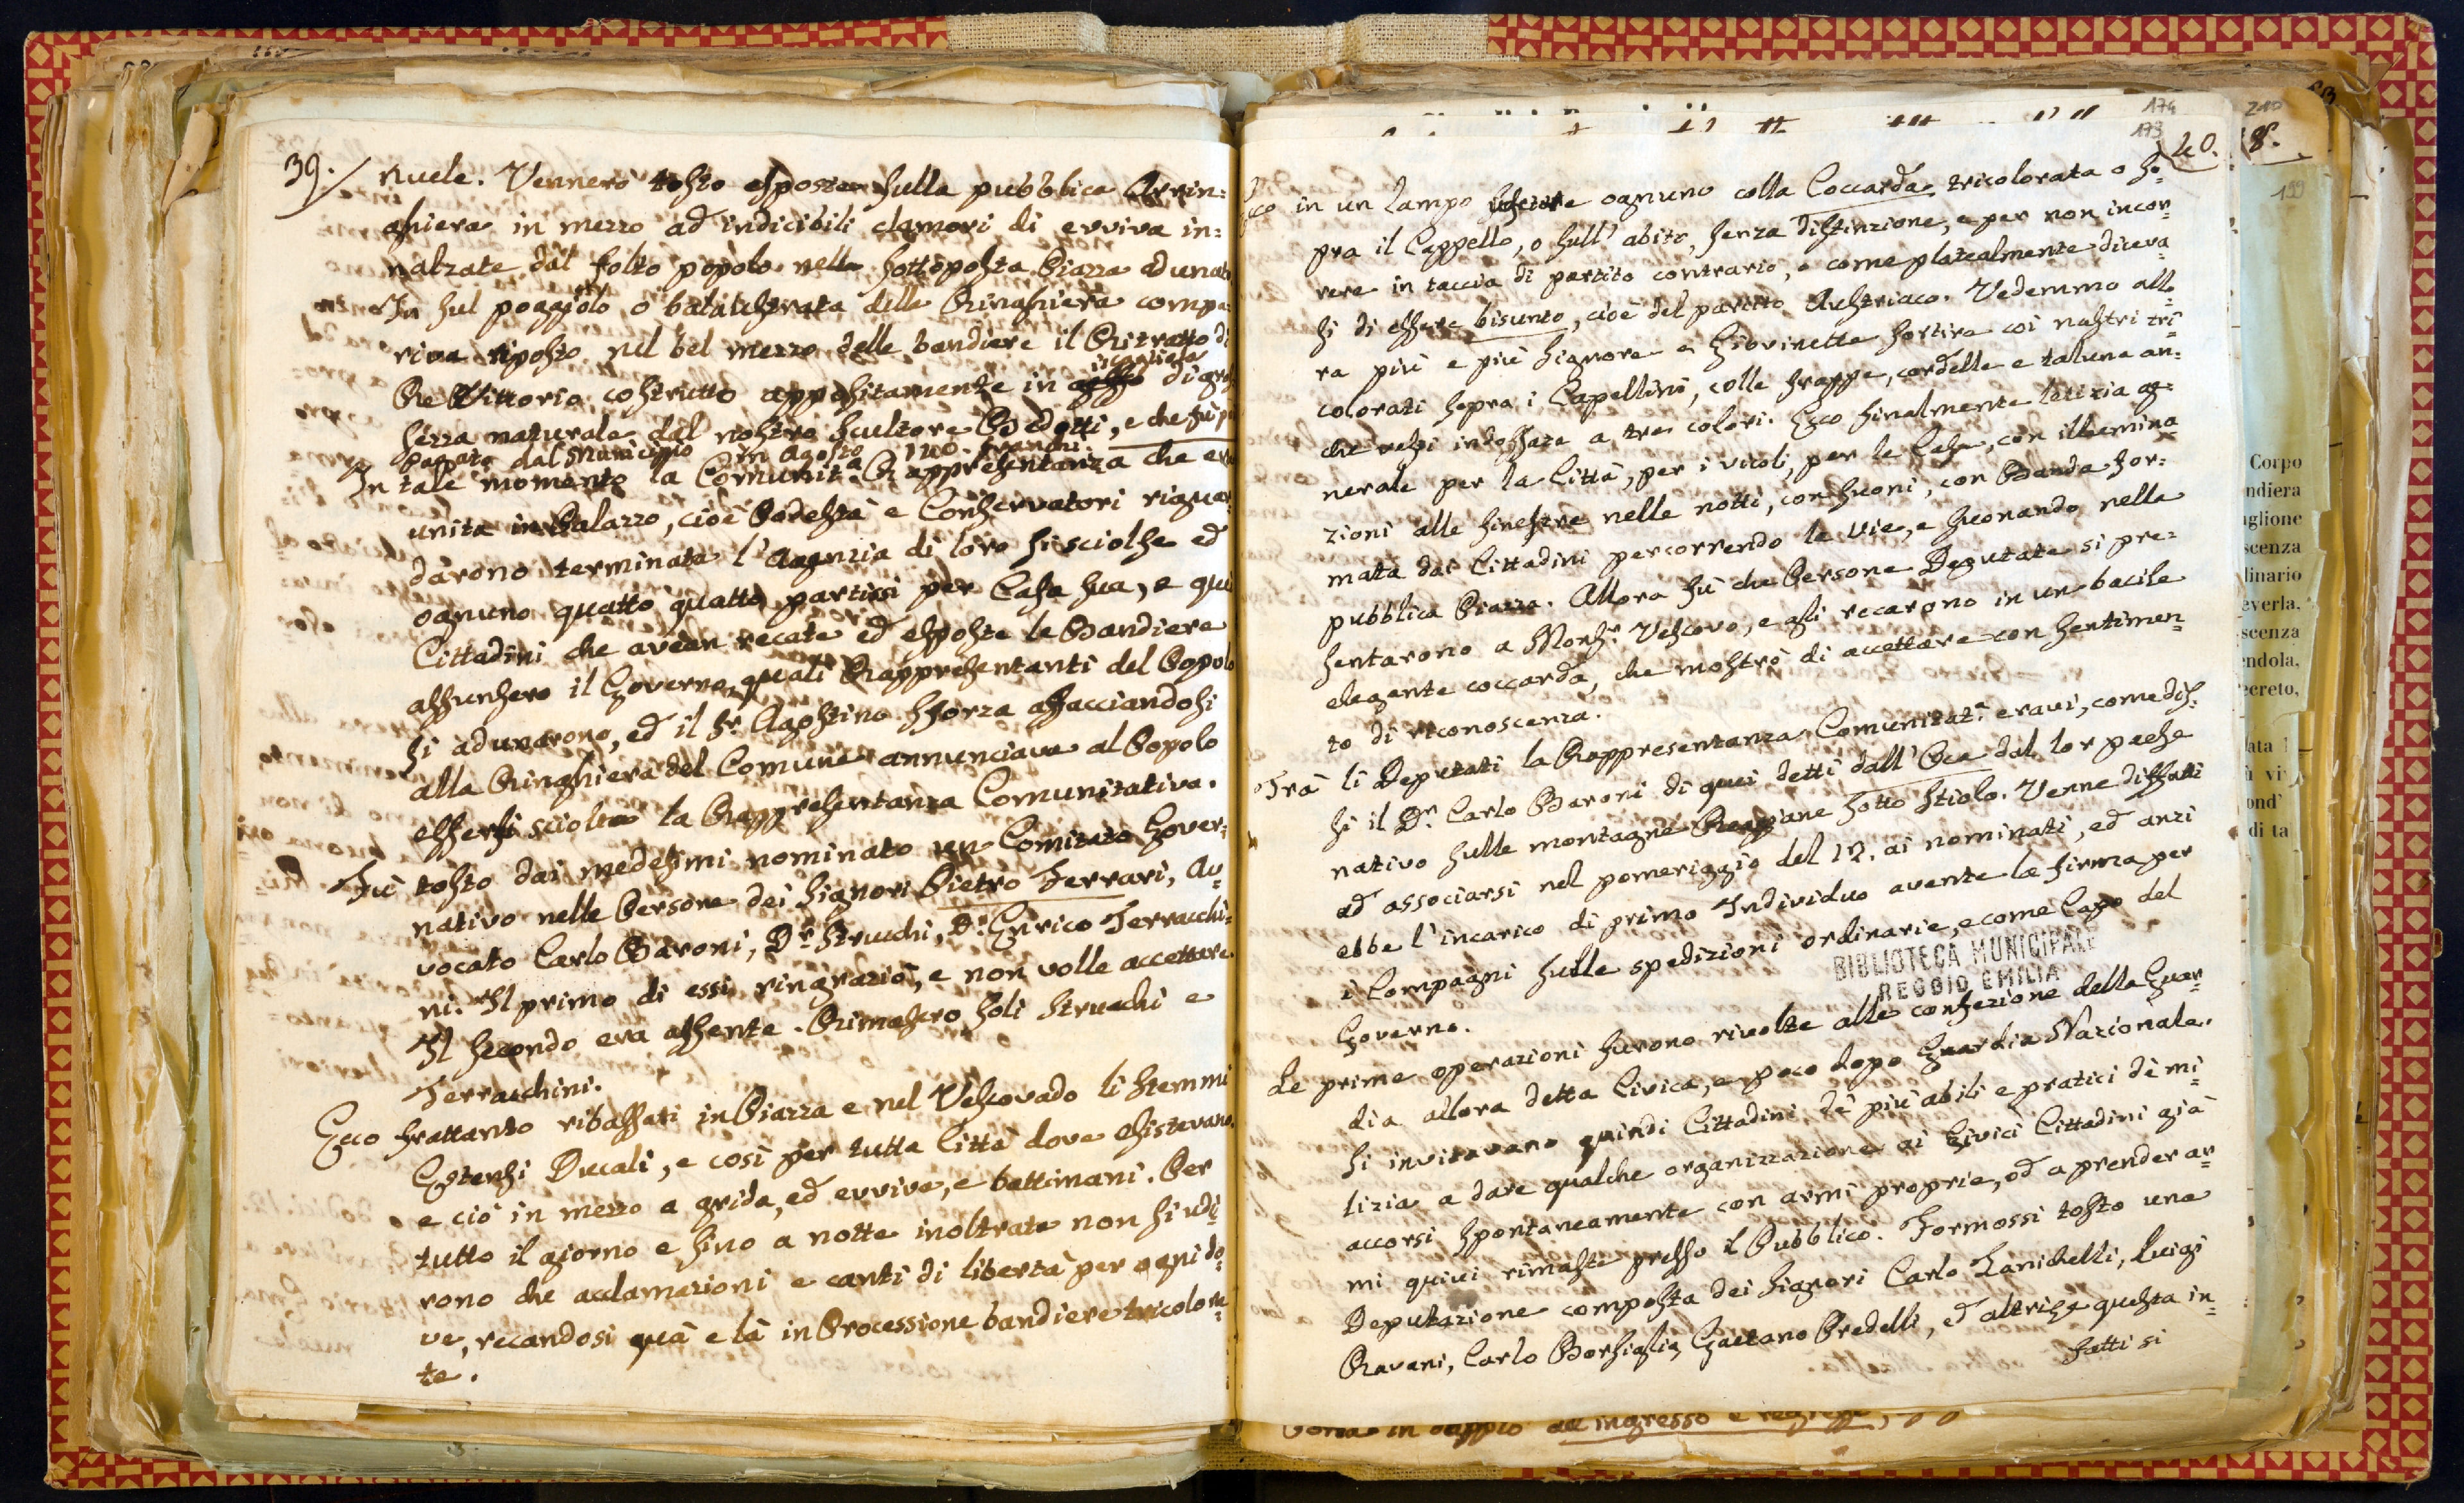 39.
nuele. Vennero tosto esposte sulla pubblica Arrin=
ghiera in mezzo ad indicibili clamori di evviva in=
nalzate dal folto popolo nella sottoposta Piazza adunato
In sul poggiolo o balaustrata della Ringhiera compa
riva riposto nel bel mezzo delle bandiere il Ritratto di
Re Vittorio costrutto appositamente in scagliola di gros
sezza naturale dal nostro scultore Bedotti, e che fù
pagato dal Municipio in Agosto 120. franchi.
In tale momento la Comunit.ª Rappresentanza che era
unita in Palazzo, cioè Podestà e Conservatori riguar
darono terminata l'Agenzia di loro si sciolse ed
ognuno quatto quatto partissi per Casa sua, e qui
Cittadini che avean recate ed esposte le Bandiere
assunsero il Governo, quali Rappresentanti del Popolo
si adunarono, ed il Sr. Agostino Sforza affacciandosi
alla Ringhiera del Comune annunciava al Popolo
essersi sciolta la Rappresentanza Comunitativa.
Fù tosto dai medesimi nominato un Comitato Gover=
nativo nelle Persone dei Signori Pietro Ferrari, Av=
vocato Carlo Baroni, Dr. Strucchi, Dr. Enrico Terracchi=
ni. Il primo di essi ringraziò, e non volle accettare.
Il secondo era assente. Rimasero soli Strucchi e
Terracchini.
Ecco frattanto ribassati in Piazza e nel Vescovado li Stemmi
Estensi Ducali, e così per tutta Città dove esistevano.
e ciò in mezzo a grida, ed evviva, e battimani. Per
tutto il giorno e sino a notte inoltrata non si udi=
rono che acclamazioni e canti di libertà per ogni do=
ve, recandosi quà e là in Processione bandiere tricolora=
te.
174
173
40.
Ecco in un lampo sortire ognuno colla Coccarda tricolorata o so=
pra il Cappello, o sull'abito, senza distinzione, e per non incor=
rere in taccia di partito contrario, o come platealmente diceva=
si di essere bisunto, cioè del partito Austriaco. Vedemmo allo=
ra più e più Signore e Giovinette sortire coi nastri tri=
colorati sopra i Capellini, colle frappe, cordelle e talune an=
che vesti indossate a tre colori. Ecco finalmente letizia ge=
nerale per la Città, per i vicoli, per le Case, con illumina=
zioni alle finestre nelle notti, con suoni, con Banda for=
mata dai Cittadini percorrendo le vie, e suonando nella
pubblica Piazza. Allora fù che Persone Deputate si pre=
sentarono a Monsr. Vescovo, e gli recarono in un bacile
elegante coccarda, che mostrò di accettare con sentimen=
to di riconoscenza.
Trà li Deputati la Rappresentanza Comunitat.ª eravi, come dis=
si il Dr. Carlo Baroni di quei detti dall'Oca dal lor paese
nativo sulle montagne Reggiane sotto Stiolo. Venne diffatti
ad associarsi nel pomeriggio del 12. ai nominati, ed anzi
ebbe l'incarico di primo Individuo avente la firma per
i Compagni sulle spedizioni ordinarie, e come Capo del
Governo.
BIBLIOTECA MUNICIPALE
REGGIO EMILIA
Le prime operazioni furono rivolte alla confezione della Guar=
dia allora detta Civica, e poco dopo Guardia Nazionale.
Si invitavano quindi Cittadini dè più abili e pratici di mi=
lizia a dare qualche organizzazione ai Civici Cittadini già
accorsi spontaneamente con armi proprie, od a prender ar=
mi quivi rimaste presso il Pubblico. Formossi tosto una
Deputazione composta dei Signori Carlo Zanichelli, Luigi
Ravani, Carlo Borsiglia, Gaetano Predelli, ed altri, e questa in=
fatti si
210
8.
199
Corpo
ndiera
aglione
scenza
linario
everla.
scenza
endola,
ecreto,